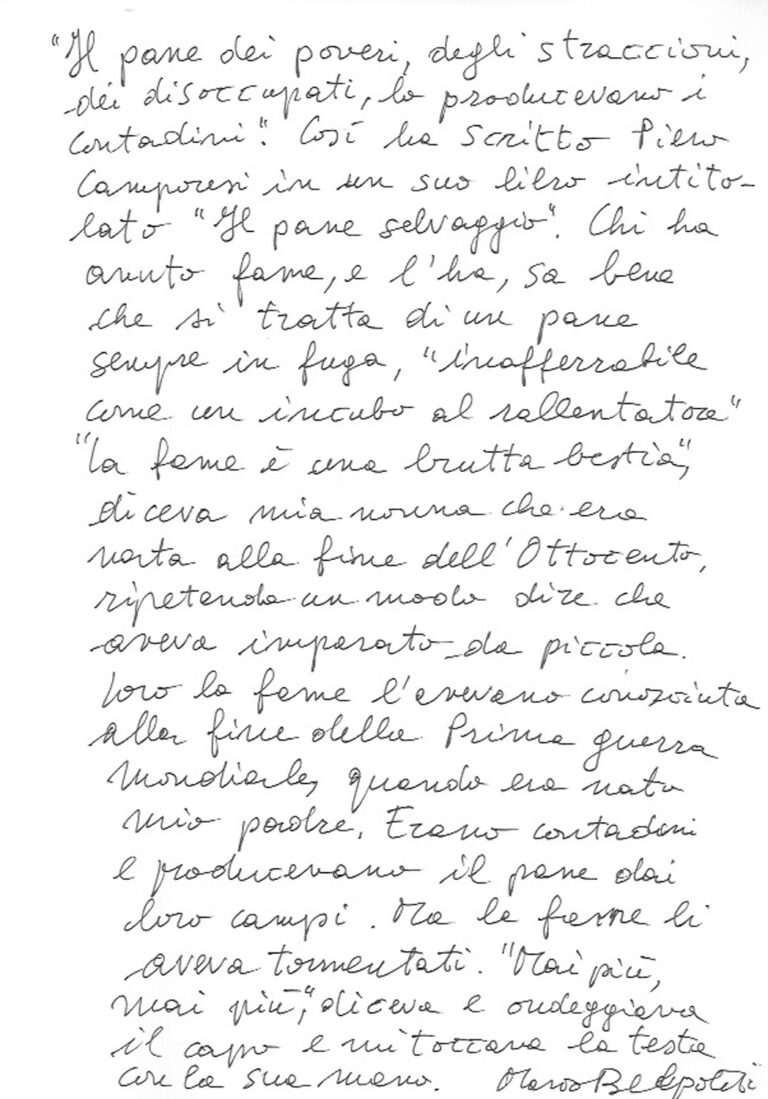 "Il pane dei poveri, degli straccioni,
dei disoccupati, lo producevano i
contadini". Così ha scritto Piero
Camporesi in un suo libro intito-
lato "Il pane selvaggio". Chi ha
avuto fame, e l'ha, sa bene
che si tratta di un pane
sempre in fuga, "inafferrabile
come un incubo al rallentatore"
"La fame è una brutta bestia",
diceva mia nonna che era
nata alla fine dell'Ottocento,
ripetendo un modo dire che
aveva imparato da piccola.
Loro la fame l'avevano conosciuta
alla fine della Prima guerra
Mondiale, quando era nato
mio padre. Erano contadini
e producevano il pane dai
loro campi. Ma la fame li
aveva tormentati. "Mai più,
mai più", diceva e ondeggiava
il capo e mi toccava la testa
con la sua mano. Marco Belpoliti